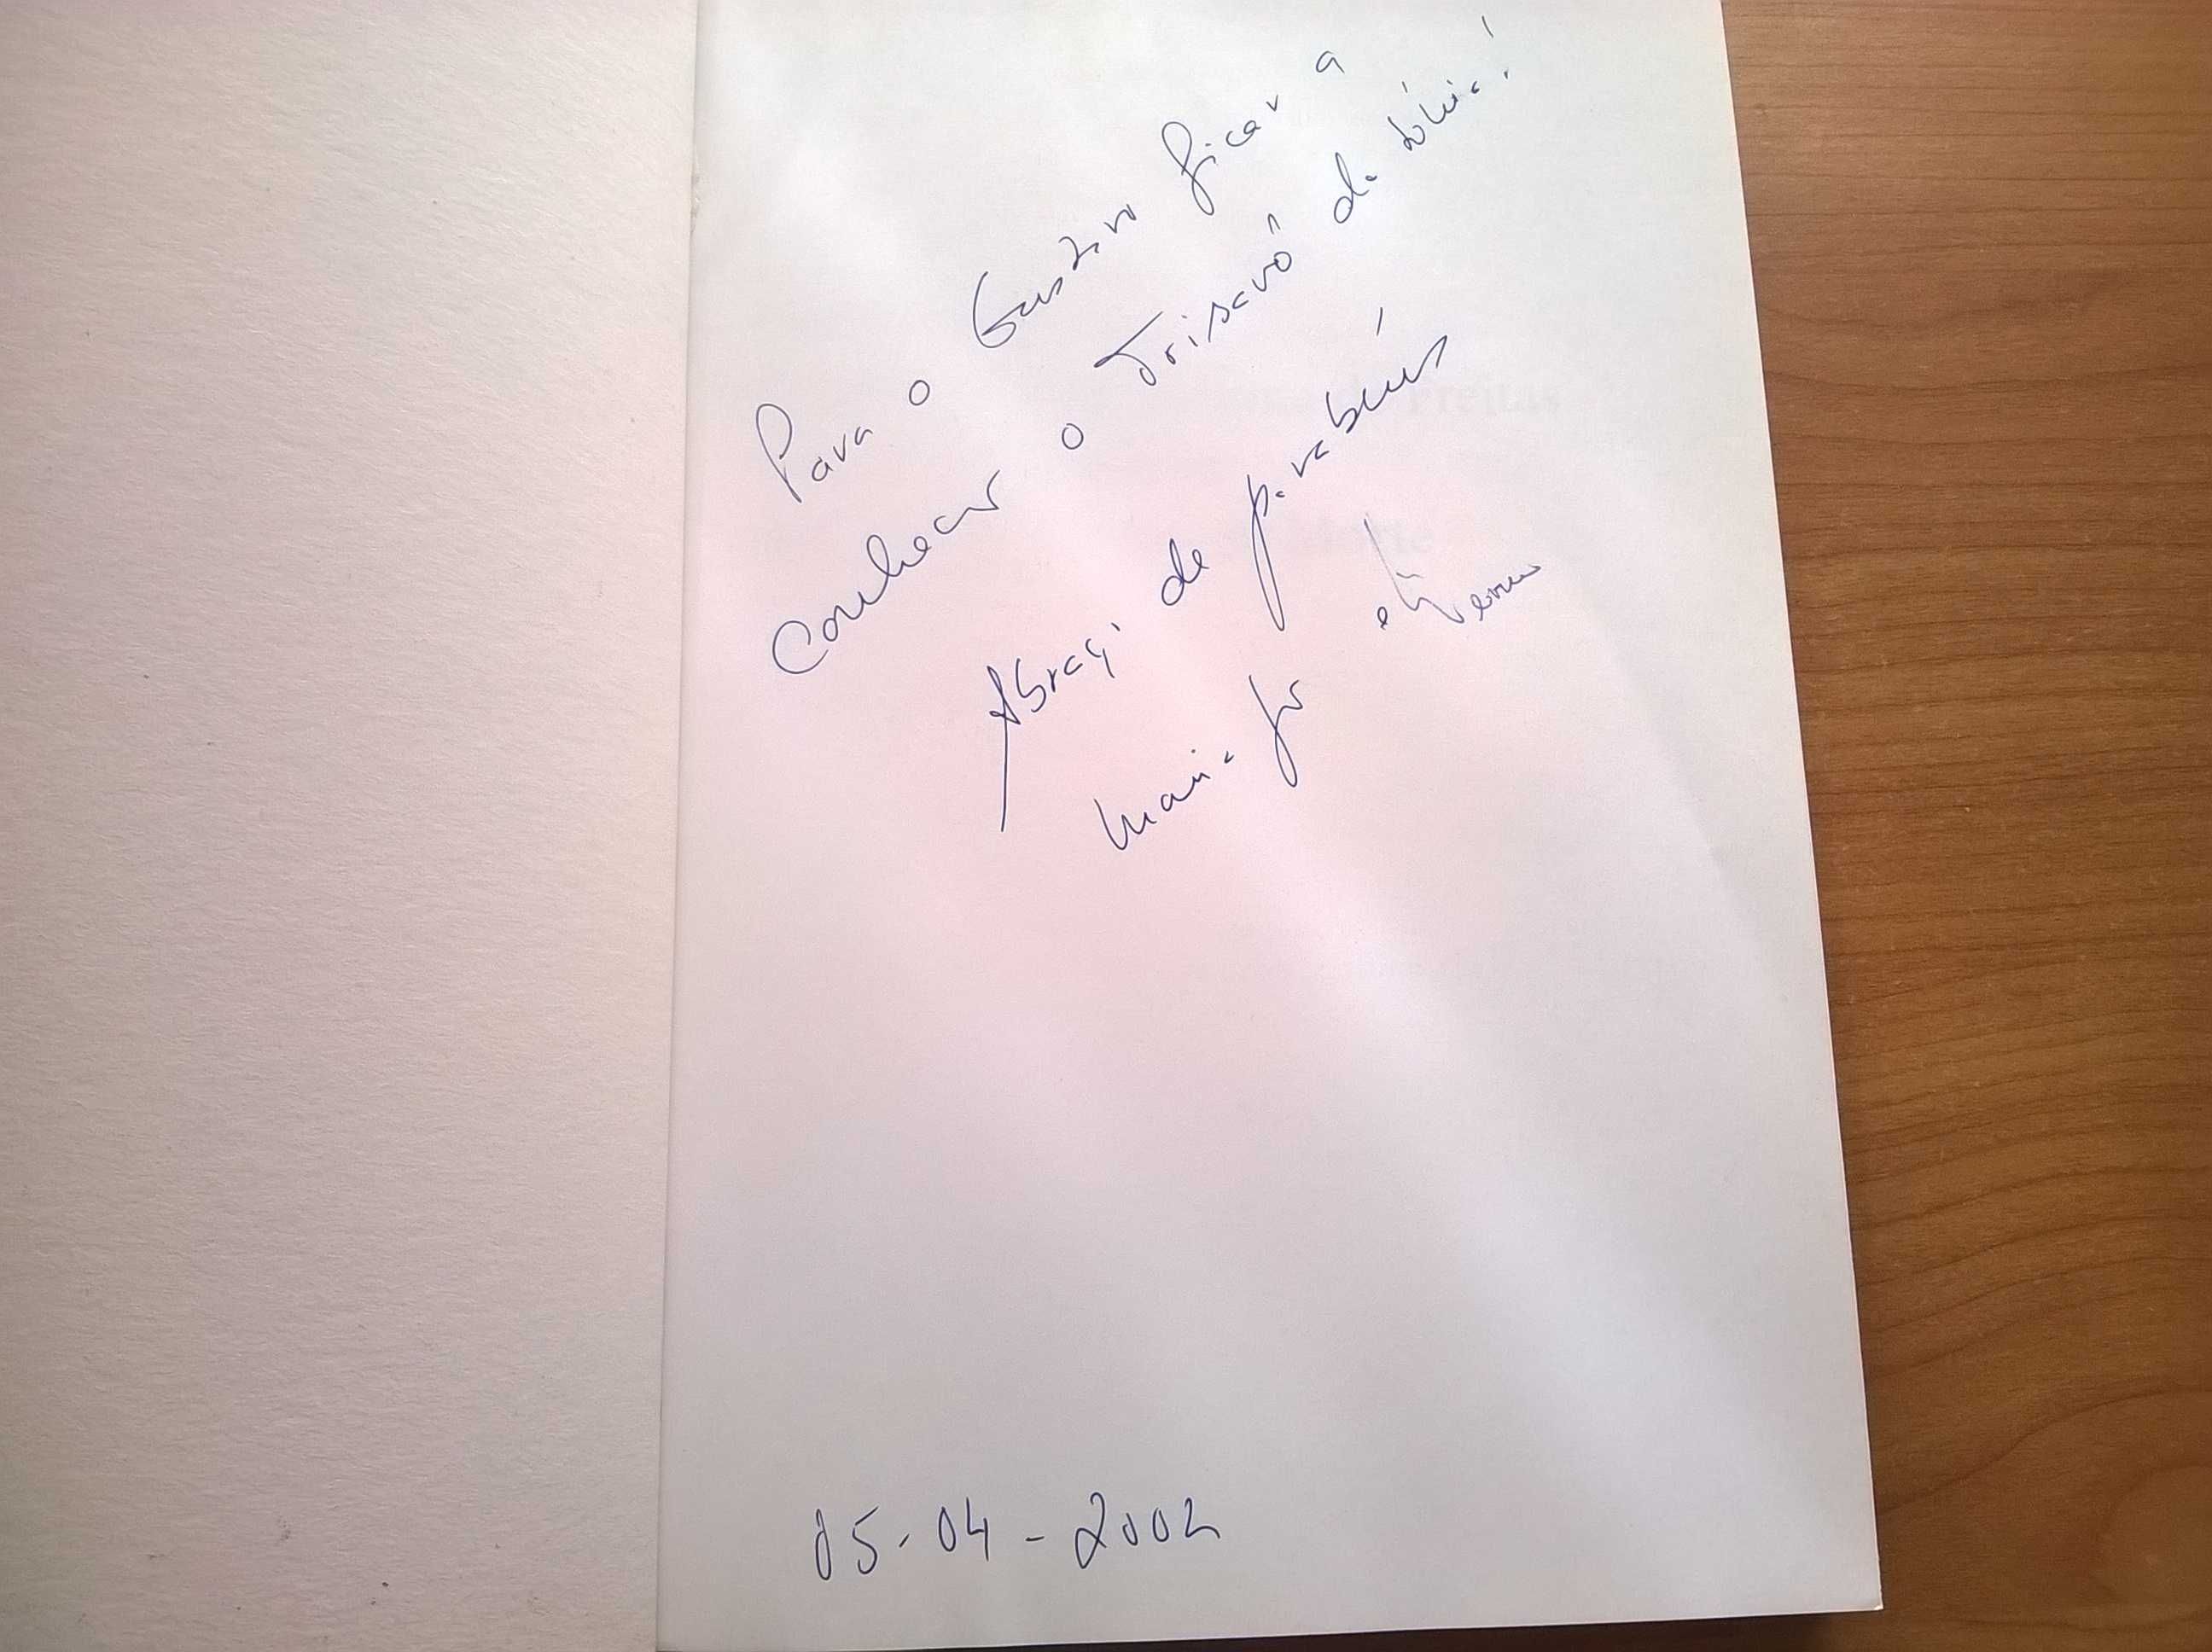 Para o Gustavo ficar a
conhecer o Trisavô da Lólia!
Abraço de parabéns
Maria Jo e
05-04-2002